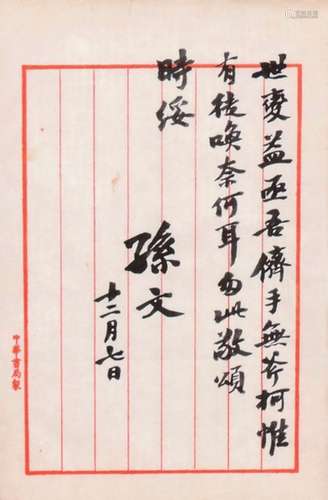 世變益亟吾儕手無斧柯惟
有徒喚奈何耳匆此敬頌
時綏
孫文
十二月七日
中華書局製